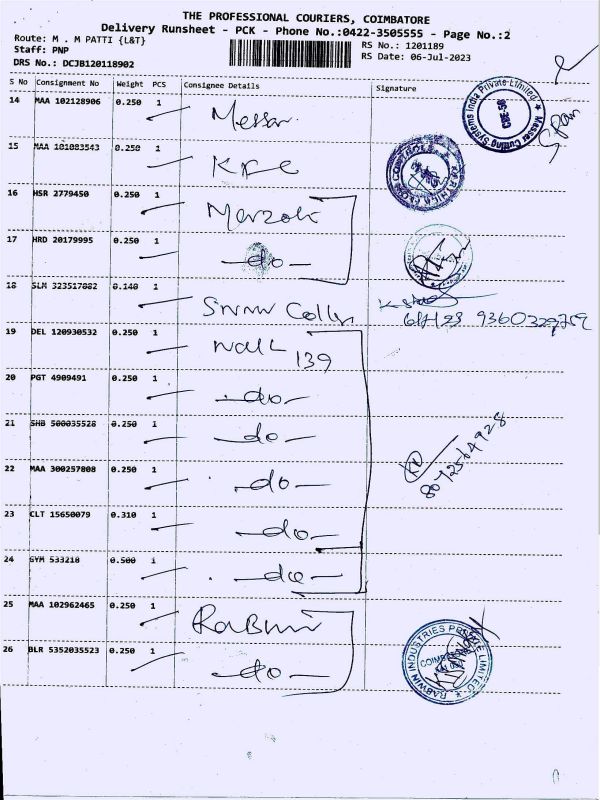 THE PROFESSIONAL COURIERS, COIMBATORE
Delivery Runsheet - PCK - Phone No.:0422-3505555 - Page No.:2
Route: M . M PATTI {L&T}
RS No.: 1201189
Staff: PNP
RS Date: 06-Jul-2023
DRS No.: DCJB120118902
S No Consignment No Weight PCS Consignee Details Signature
14 MAA 102128906 0.250 1 Messer
15 MAA 101083543 0.250 1
16 HSR 2779450 0.250 1
17 HRD 20179995 0.250 1 -do-
18 SLM 323517082 0.140 1
19 DEL 120930532 0.250 1 139
20 PGT 4909491 0.250 1 -do-
21 SHB 500035528 0.250 1 -do-
22 MAA 300257808 0.250 1 -do-
23 CLT 15650079 0.310 1 -do-
24 GYM 533210 0.500 1 -do-
25 MAA 102962465 0.250 1
26 BLR 5352035523 0.250 1 -do-
Messer Cutting Systems India Private Limited
CBE-50
RABWIN INDUSTRIES PRIVATE LIMITED